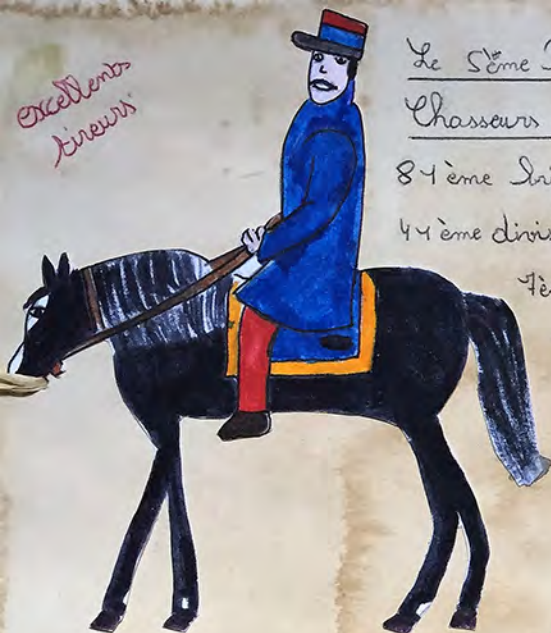 excellents
tireurs
Le 5ème
Chasseurs
81ème bri
41ème divis
7è